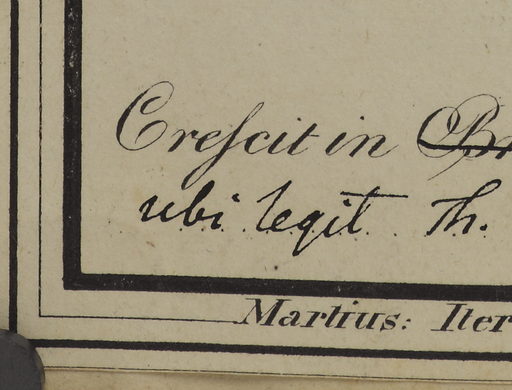 Creſcit in
ubi legit Th.
Martius: Iter